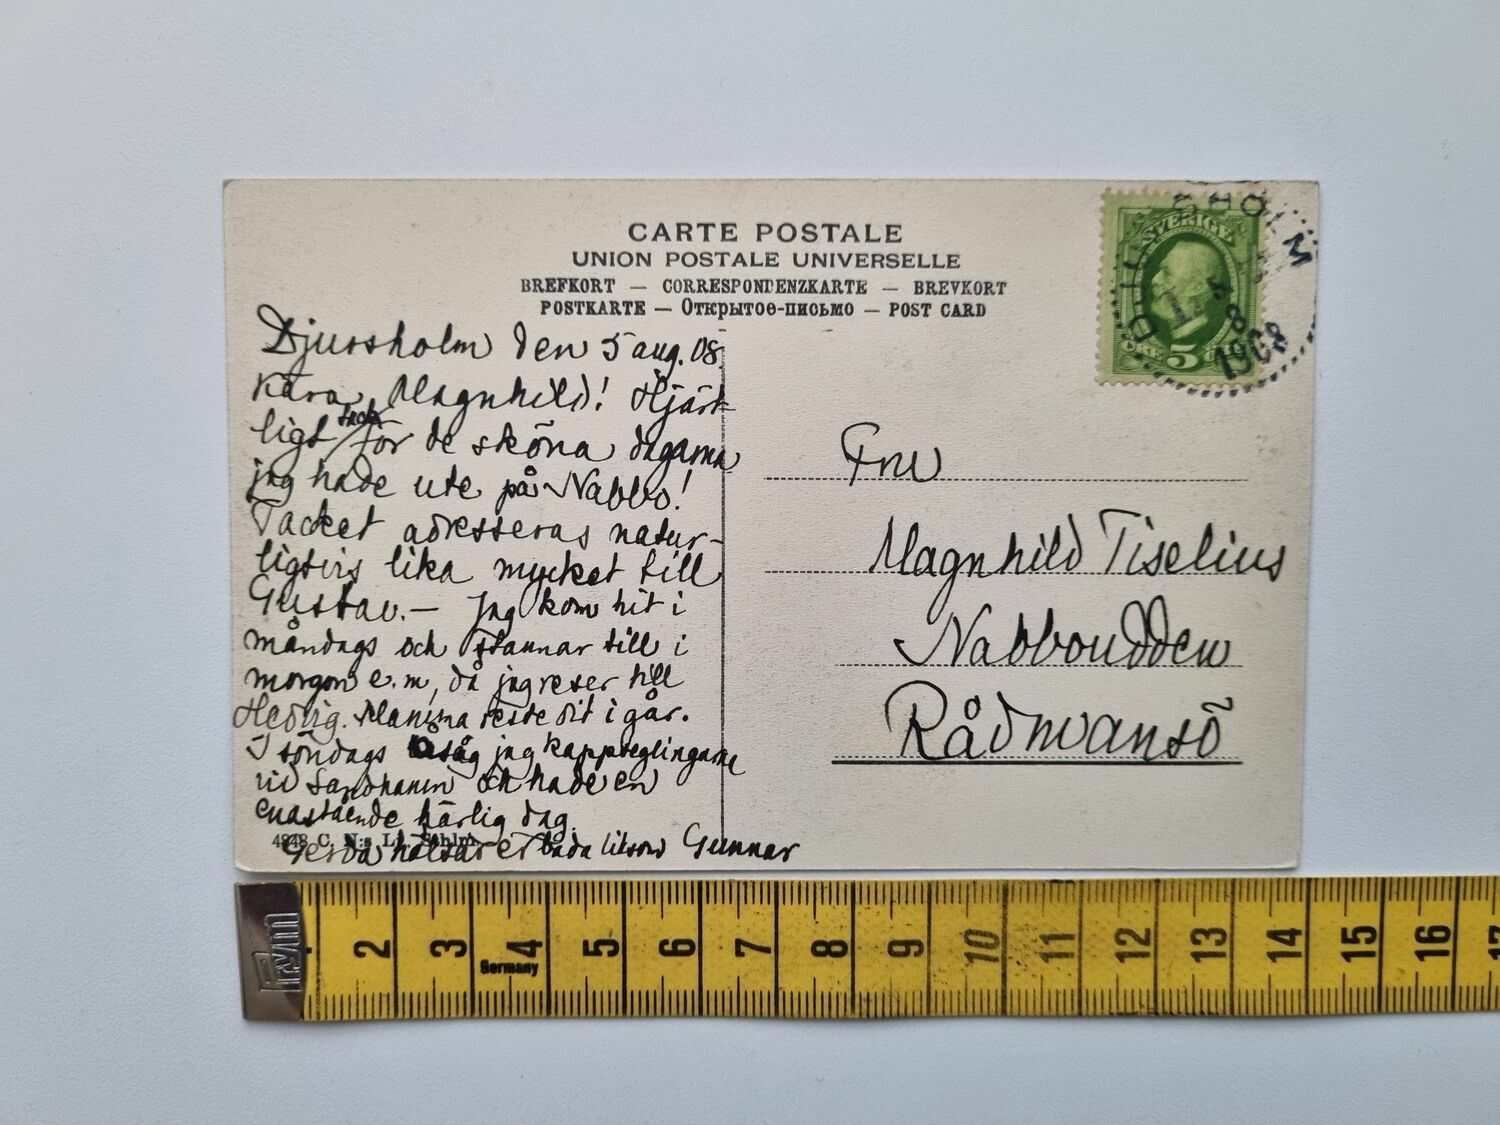 CARTE POSTALE
UNION POSTALE UNIVERSELLE
BREFKORT — CORRESPONDENZKARTE — BREVKORT
POSTKARTE — Открытое-письмо — POST CARD
SVERIGE
5
DJURSHOLM
1908
Djursholm den 5 aug. 08.
Kära Magnhild! Hjärt-
ligt tack för de sköna dagarna
jag hade ute på Nabbo!
Tacket adresseras natur-
ligtvis lika mycket till
Gustav. — Jag kom hit i
måndags och stannar till i
morgon e.m, då jag reser till
Hedvig. Mamma reste dit i går.
I söndags såg jag kappseglingarna
vid Sandhamn och hade en
enastående härlig dag.
Gerda hälsar er båda liksom Gunnar
4848 C. N:s Lj., Sthlm.
Fru
Magnhild Tiselius
Nabboudden
Rådmansö
Prym
2 3 4 5 6 7 8 9 10 11 12 13 14 15 16 17
Germany